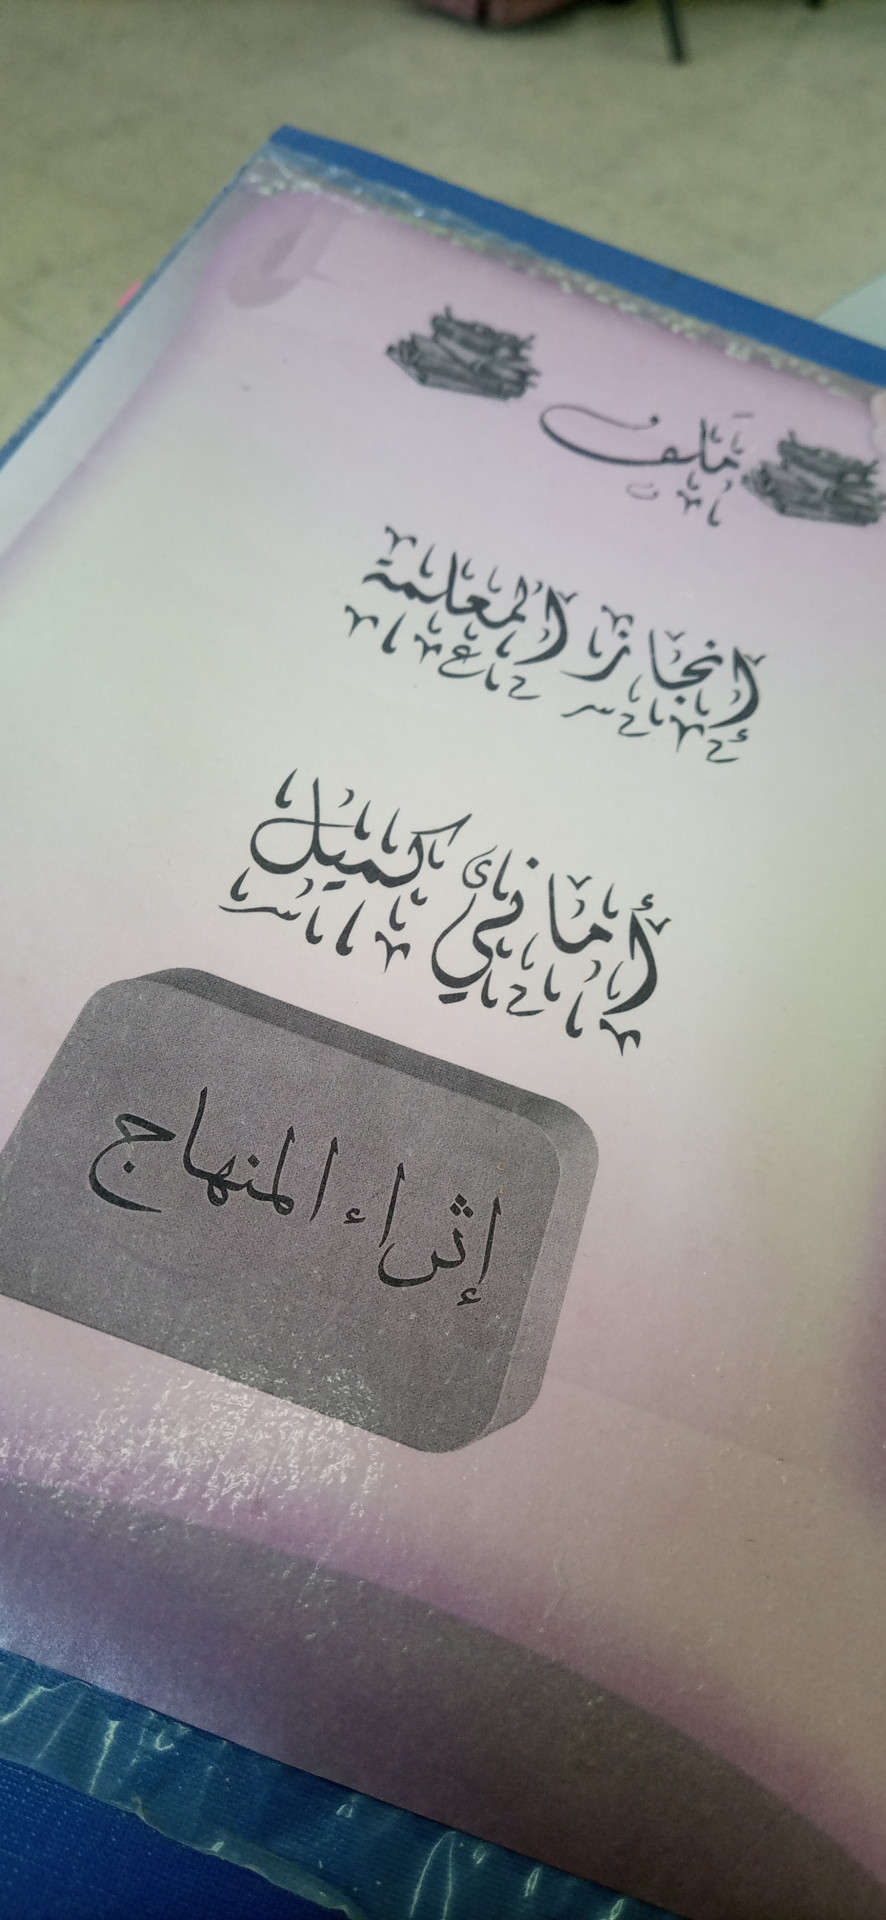 ملف
إنجاز المعلمة
أماني كميل
إثراء المنهاج